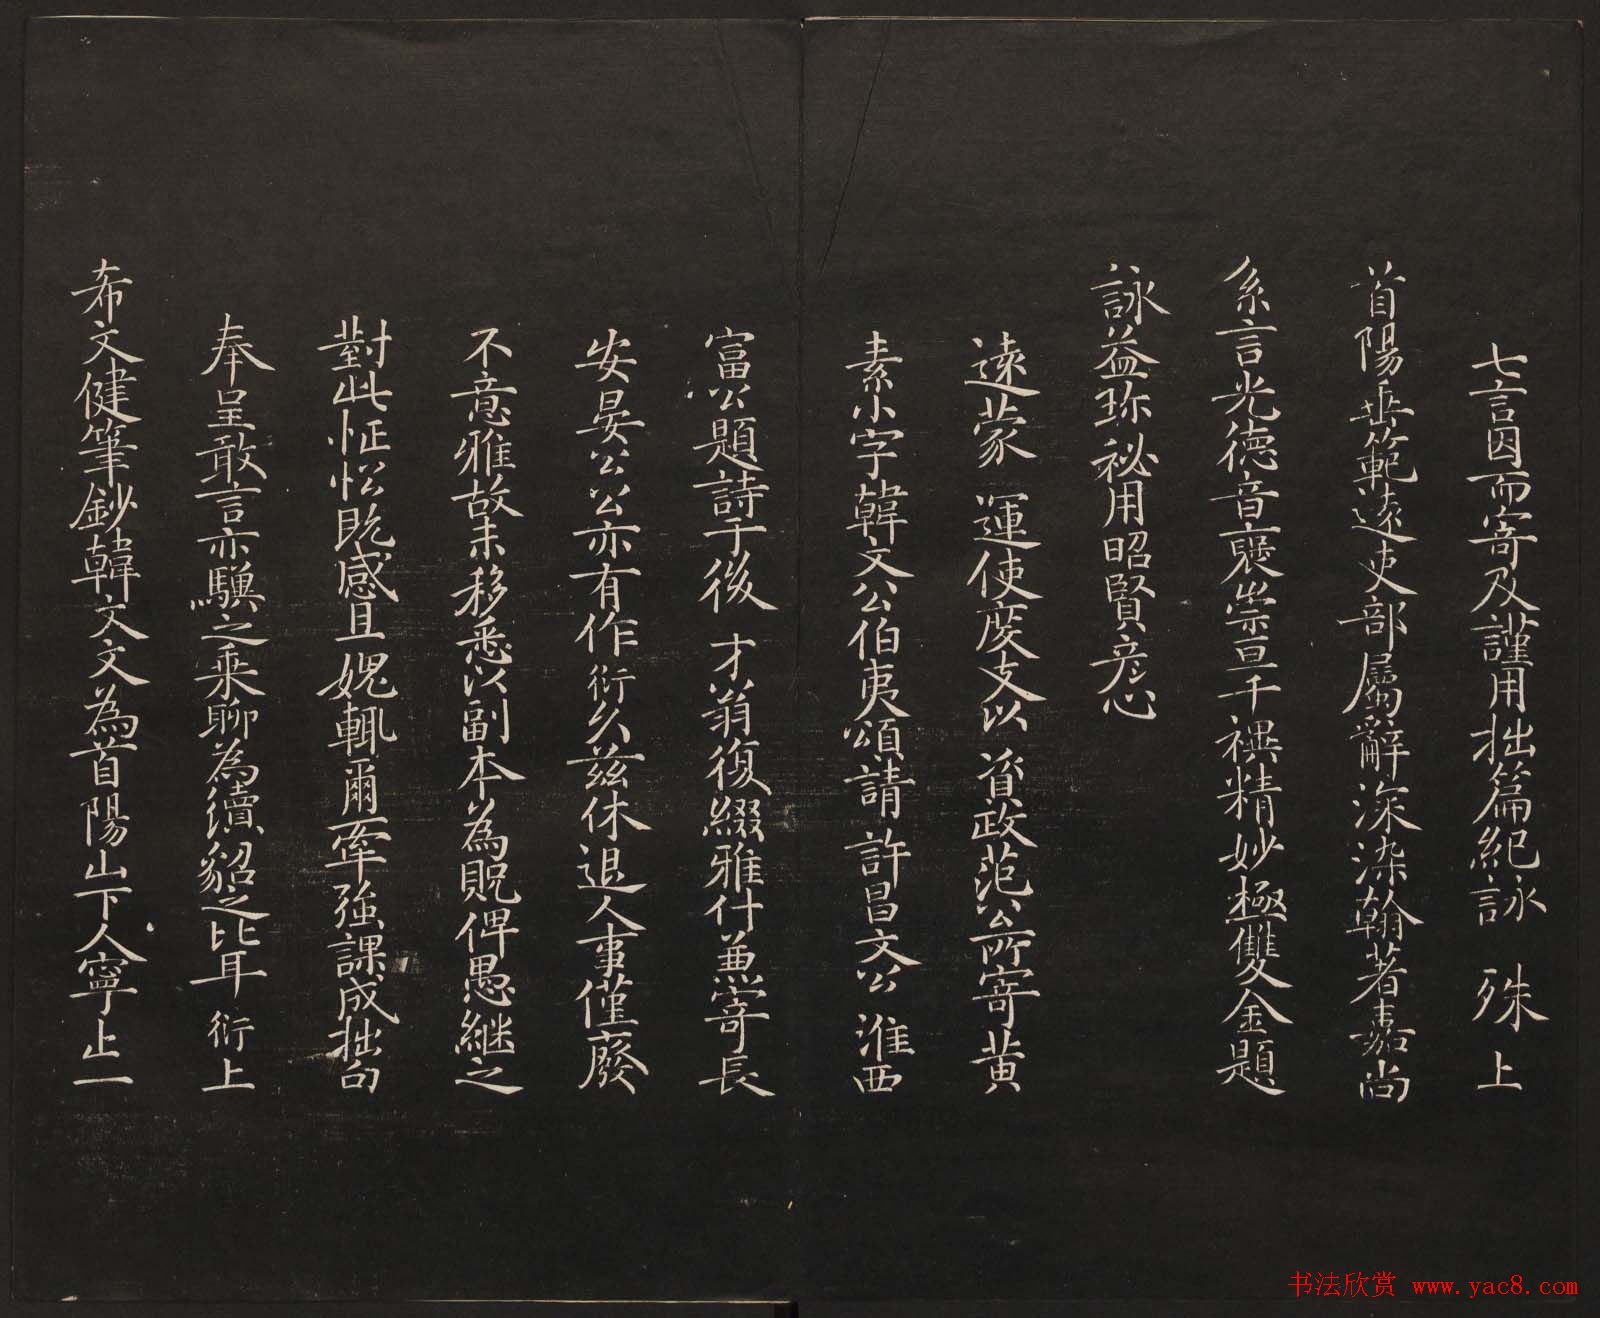 七言因而寄及謹用拙篇紀詠 殊上
首陽垂範遠吏部屬辭深染翰著嘉尚
系言光德音襃崇亘千禩精妙極雙金題
詠益珎祕用昭賢彥心
遠蒙 運使度支以 資政范公所寄黃
素小字韓文公伯夷頌請 許昌文公 淮西
富公題詩于後 才翁復綴雅什兼寄長
安晏公公亦有作衍久茲休退人事僅廢
不意雅故未移悉以副本為貺俾愚繼之
對此怔忪既感且媿輒爾牽強課成拙句
奉呈敢言亦驥之乘聊為續貂之比耳 衍上
希文健筆鈔韓文文為首陽山下人寧止一
书法欣赏 www.yac8.com